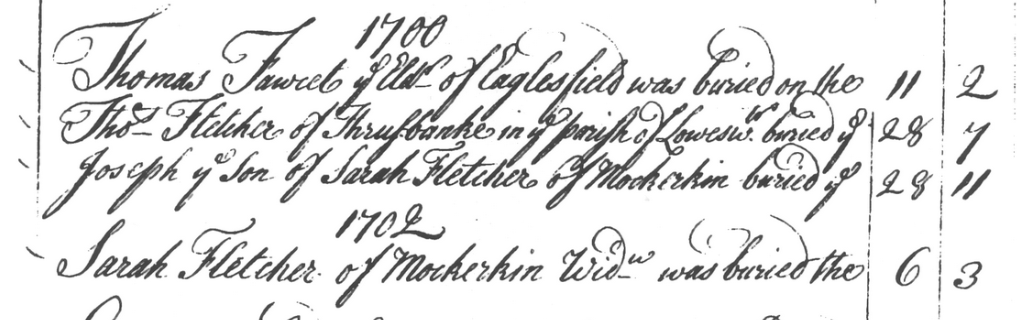 1700
Thomas Fawcet ye Eldr of Eaglesfield was buried on the 11 2
Thos Fletcher of Thrushbanke in ye parish of Lowesw buried ye 28 7
Joseph ye son of Sarah Fletcher of Mockerkin buried ye 28 11
1702
Sarah Fletcher of Mockerkin Widw was buried the 6 3